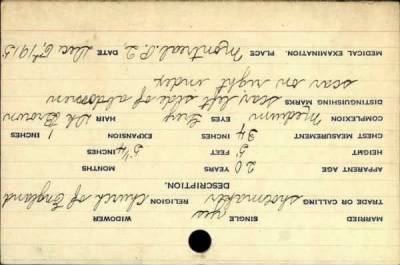 MARRIED SINGLE yes WIDOWER
TRADE OR CALLING shoemaker RELIGION Church of England
DESCRIPTION.
APPARENT AGE 20 YEARS MONTHS
HEIGHT 5 FEET 5¼ INCHES
CHEST MEASUREMENT 34 INCHES EXPANSION 1 INCHES
COMPLEXION medium EYES Grey HAIR Dk Brown
DISTINGUISHING MARKS scar left side of abdomen
scar on right index
MEDICAL EXAMINATION. PLACE Montreal P.2. DATE Dec 6th 1915